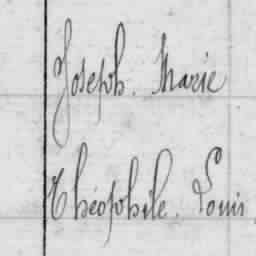 Joseph. Marie
Théophile. Louis.